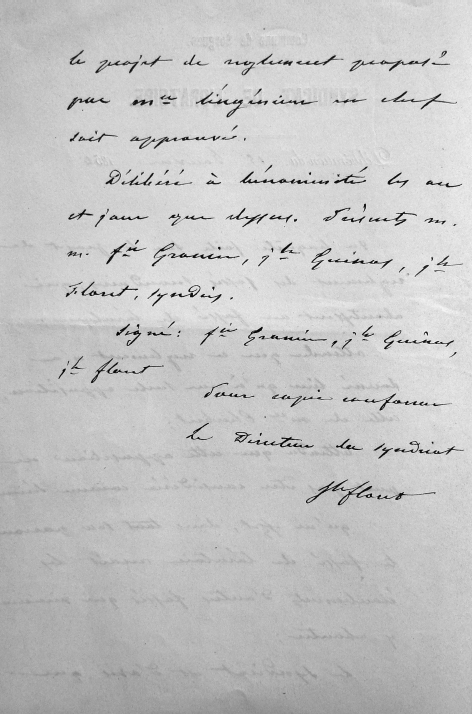 le projet de règlement proposé
par Mr l'ingénieur en chef
soit approuvé.
Délibéré à l'unanimité les an
et jour que dessus. Présents M.
M. fois Granier, jh Guinot, jh
Flont, syndics.
Signé: fois Granier, jh Guinot,
jh flont
Pour copie conforme
Le Directeur du syndicat
Jh flont